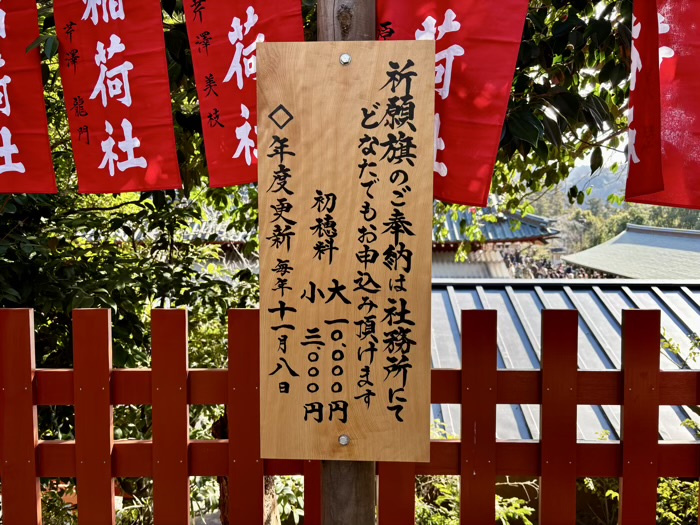 祈願旗のご奉納は社務所にて
どなたでもお申込み頂けます
初穂料 大 一〇、〇〇〇円
小 三、〇〇〇円
◇年度更新 毎年十一月八日
荷
荷社
芹澤美枝
稲荷社
芹澤龍門
社